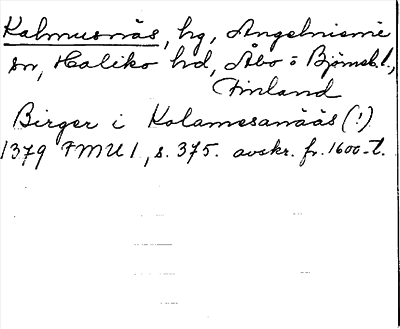 Kalmusnäs, hg, Angelniemi
sn, Haliko hd, Åbo o Björneb.l.,
Finland
Birger i Kolamesanääs (!)
1379 FMU 1, s. 375. avskr. fr. 1600-t.